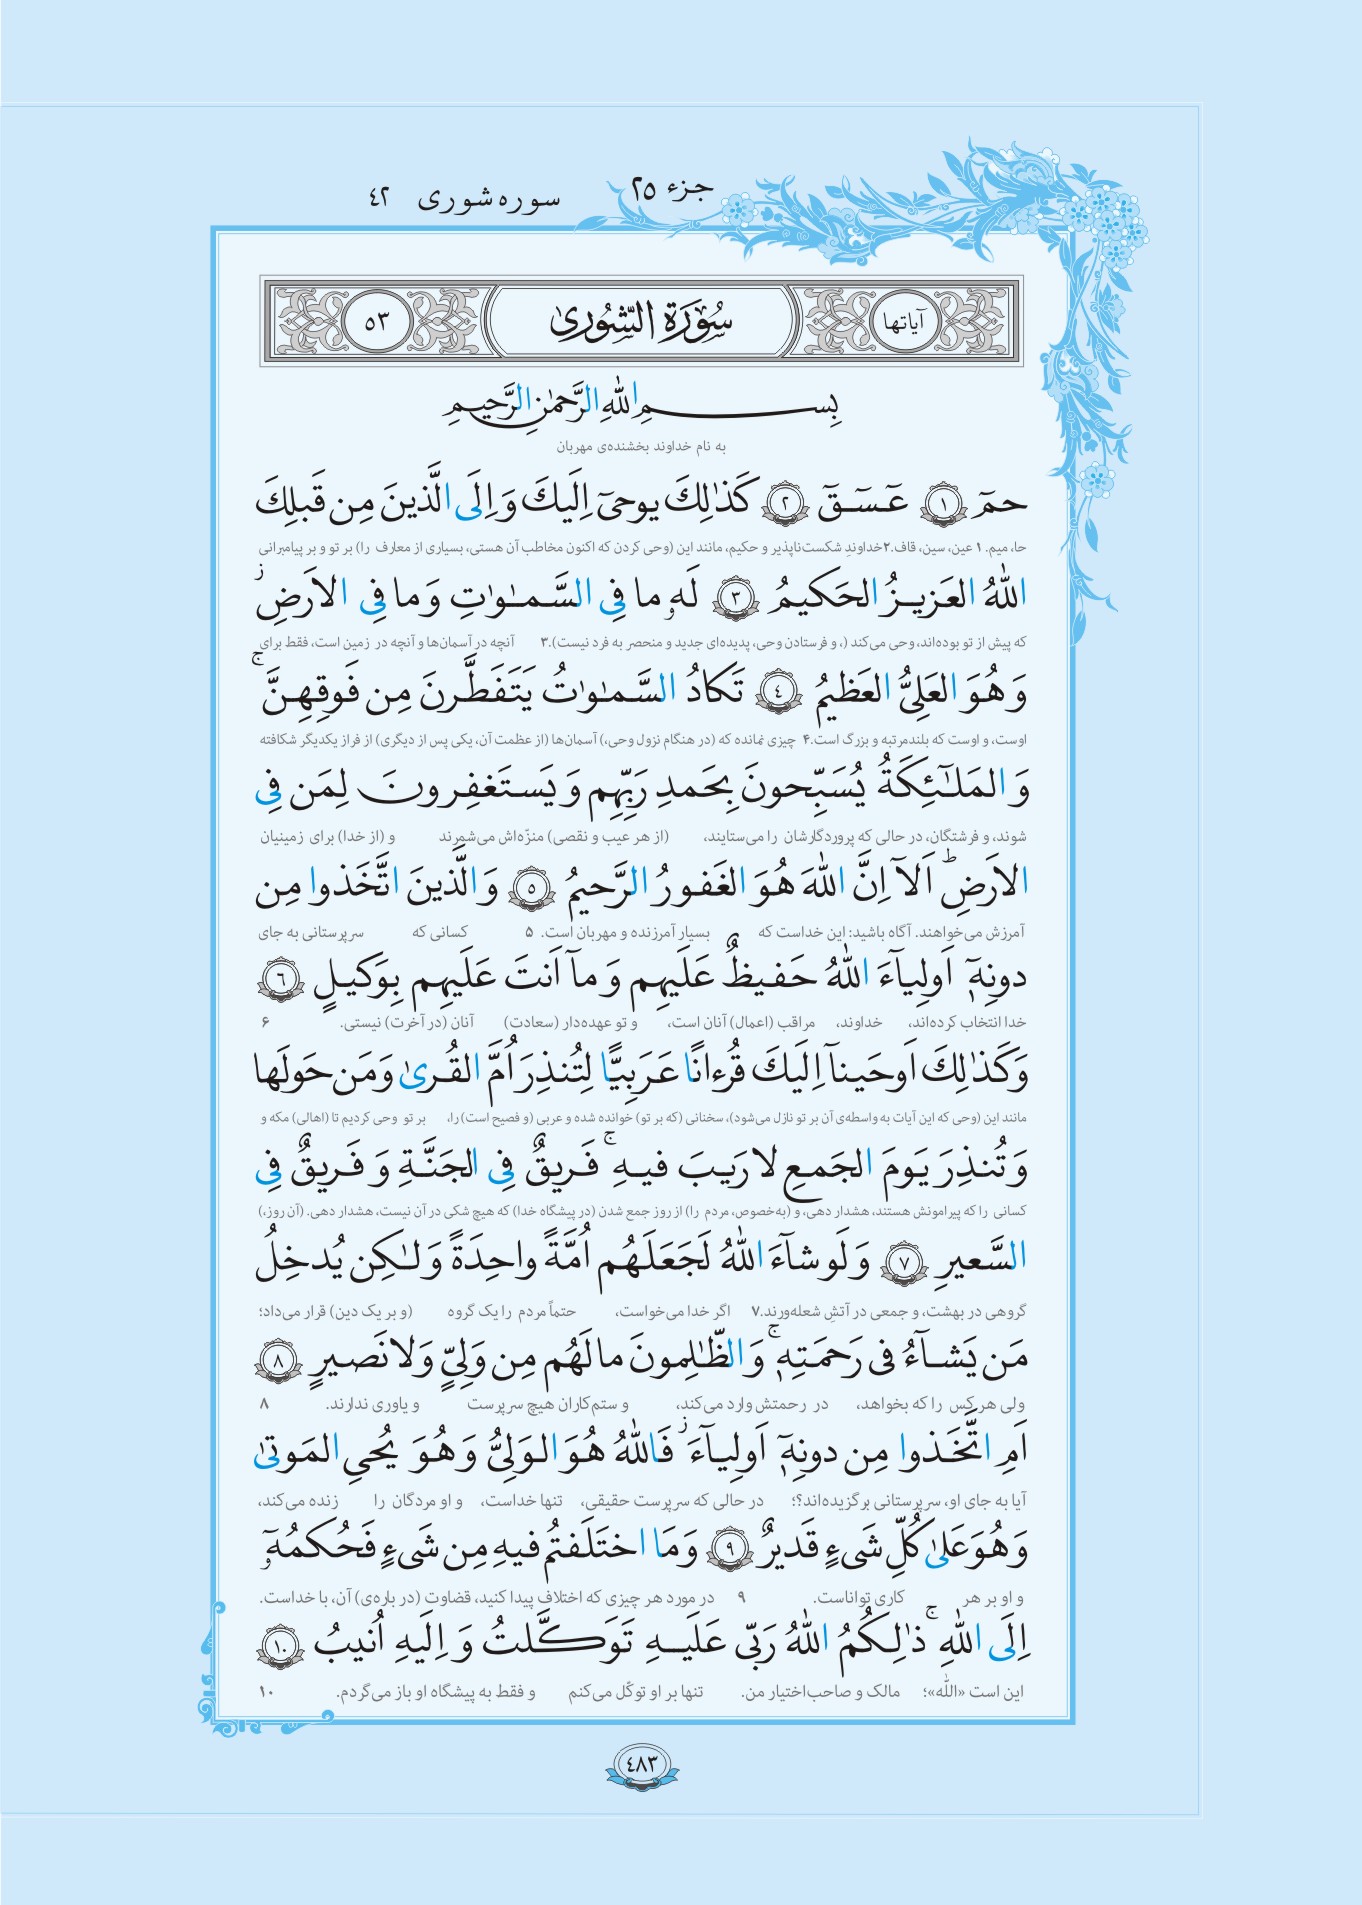 جزء ۲۵
سوره شوری ۴۲
آیاتها
سُورَةُ الشّورىٰ
۵۳
بِسمِ اللّٰهِ الرَّحمٰنِ الرَّحيمِ
به نام خداوند بخشنده‌ی مهربان
حمٓ ۱ عٓسٓقٓ ۲ كَذٰلِكَ يوحىٓ اِلَيكَ وَ اِلَى الَّذينَ مِن قَبلِكَ
حا، میم. ۱ عین، سین، قاف.۲ خداوندِ شکست‌ناپذیر و حکیم، مانند این (وحی کردن که اکنون مخاطب آن هستی، بسیاری از معارف را) بر تو و بر پیامبرانی
اللّٰهُ العَزيزُ الحَكيمُ ۳ لَهٗ ما فِى السَّمٰوٰتِ وَ ما فِى الاَرضِ ز
که پیش از تو بوده‌اند، وحی می‌کند (، و فرستادن وحی، پدیده‌ای جدید و منحصر به فرد نیست).۳ آنچه در آسمان‌ها و آنچه در زمین است، فقط برای
وَ هُوَ العَلِىُّ العَظيمُ ۴ تَكادُ السَّمٰوٰتُ يَتَفَطَّرنَ مِن فَوقِهِنَّ ج
اوست، و اوست که بلندمرتبه و بزرگ است.۴ چیزی نمانده که (در هنگام نزول وحی،) آسمان‌ها (از عظمت آن، یکی پس از دیگری) از فراز یکدیگر شکافته
وَ المَلٰٓئِكَةُ يُسَبِّحونَ بِحَمدِ رَبِّهِم وَ يَستَغفِرونَ لِمَن فِى
شوند، و فرشتگان، در حالی که پروردگارشان را می‌ستایند، (از هر عیب و نقصی) منزّه‌اش می‌شمرند و (از خدا) برای زمینیان
الاَرضِ ط اَلآ اِنَّ اللّٰهَ هُوَ الغَفورُ الرَّحيمُ ۵ وَ الَّذينَ اتَّخَذوا مِن
آمرزش می‌خواهند. آگاه باشید: این خداست که بسیار آمرزنده و مهربان است. ۵ کسانی که سرپرستانی به جای
دونِهٖٓ اَولِيآءَ اللّٰهُ حَفيظٌ عَلَيهِم وَ مآ اَنتَ عَلَيهِم بِوَكيلٍ ۶
خدا انتخاب کرده‌اند، خداوند، مراقب (اعمال) آنان است، و تو عهده‌دار (سعادت) آنان (در آخرت) نیستی. ۶
وَ كَذٰلِكَ اَوحَينآ اِلَيكَ قُرءانًا عَرَبِيًّا لِتُنذِرَ اُمَّ القُرىٰ وَ مَن حَولَها
مانند این (وحی که این آیات به واسطه‌ی آن بر تو نازل می‌شود)، سخنانی (که بر تو) خوانده شده و عربی (و فصیح است) را، بر تو وحی کردیم تا (اهالی) مکه و
وَ تُنذِرَ يَومَ الجَمعِ لا رَيبَ فيهِ ج فَريقٌ فِى الجَنَّةِ وَ فَريقٌ فِى
کسانی را که پیرامونش هستند، هشدار دهی، و (به‌خصوص، مردم را) از روز جمع شدن (در پیشگاه خدا) که هیچ شکی در آن نیست، هشدار دهی. (آن روز،)
السَّعيرِ ۷ وَ لَو شآءَ اللّٰهُ لَجَعَلَهُم اُمَّةً واحِدَةً وَ لٰكِن يُدخِلُ
گروهی در بهشت، و جمعی در آتشِ شعله‌ورند.۷ اگر خدا می‌خواست، حتماً مردم را یک گروه (و بر یک دین) قرار می‌داد؛
مَن يَشآءُ فى رَحمَتِهٖ ج وَ الظّٰلِمونَ ما لَهُم مِن وَلِىٍّ وَ لا نَصيرٍ ۸
ولی هر کس را که بخواهد، در رحمتش وارد می‌کند، و ستم‌کاران هیچ سرپرست و یاوری ندارند. ۸
اَمِ اتَّخَذوا مِن دونِهٖٓ اَولِيآءَ ز فَاللّٰهُ هُوَ الوَلِىُّ وَ هُوَ يُحىِ المَوتىٰ
آیا به جای او، سرپرستانی برگزیده‌اند؟؛ در حالی که سرپرست حقیقی، تنها خداست، و او مردگان را زنده می‌کند،
وَ هُوَ عَلىٰ كُلِّ شَىءٍ قَديرٌ ۹ وَ مَا اختَلَفتُم فيهِ مِن شَىءٍ فَحُكمُهٗٓ
و او بر هر کاری تواناست. ۹ در مورد هر چیزی که اختلاف پیدا کنید، قضاوت (در باره‌ی) آن، با خداست.
اِلَى اللّٰهِ ج ذٰلِكُمُ اللّٰهُ رَبّى عَلَيهِ تَوَكَّلتُ وَ اِلَيهِ اُنيبُ ۱۰
این است «اللّٰه»؛ مالک و صاحب‌اختیار من. تنها بر او توکّل می‌کنم و فقط به پیشگاه او باز می‌گردم. ۱۰
۴۸۳